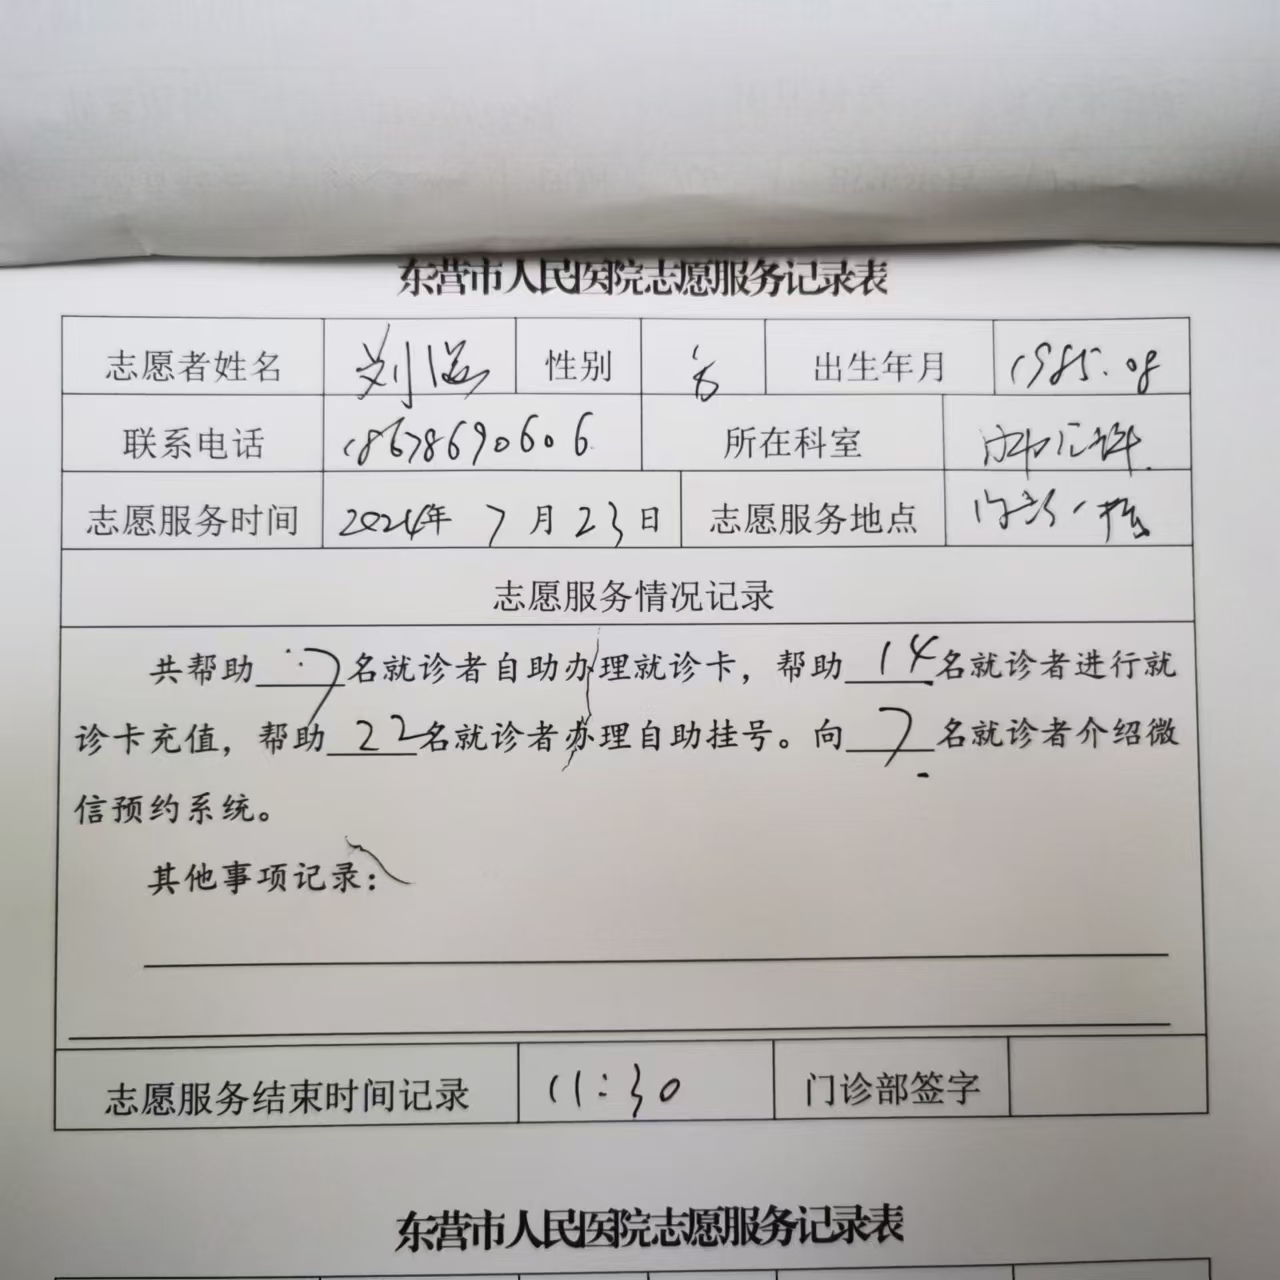 东营市人民医院志愿服务记录表
志愿者姓名 刘 性别 出生年月 1985.08
联系电话 18678690606 所在科室
志愿服务时间 2024年 7月23日 志愿服务地点
志愿服务情况记录
共帮助 7 名就诊者自助办理就诊卡，帮助 14 名就诊者进行就
诊卡充值，帮助 22 名就诊者办理自助挂号。向 7 名就诊者介绍微
信预约系统。
其他事项记录：
志愿服务结束时间记录 11:30 门诊部签字
东营市人民医院志愿服务记录表